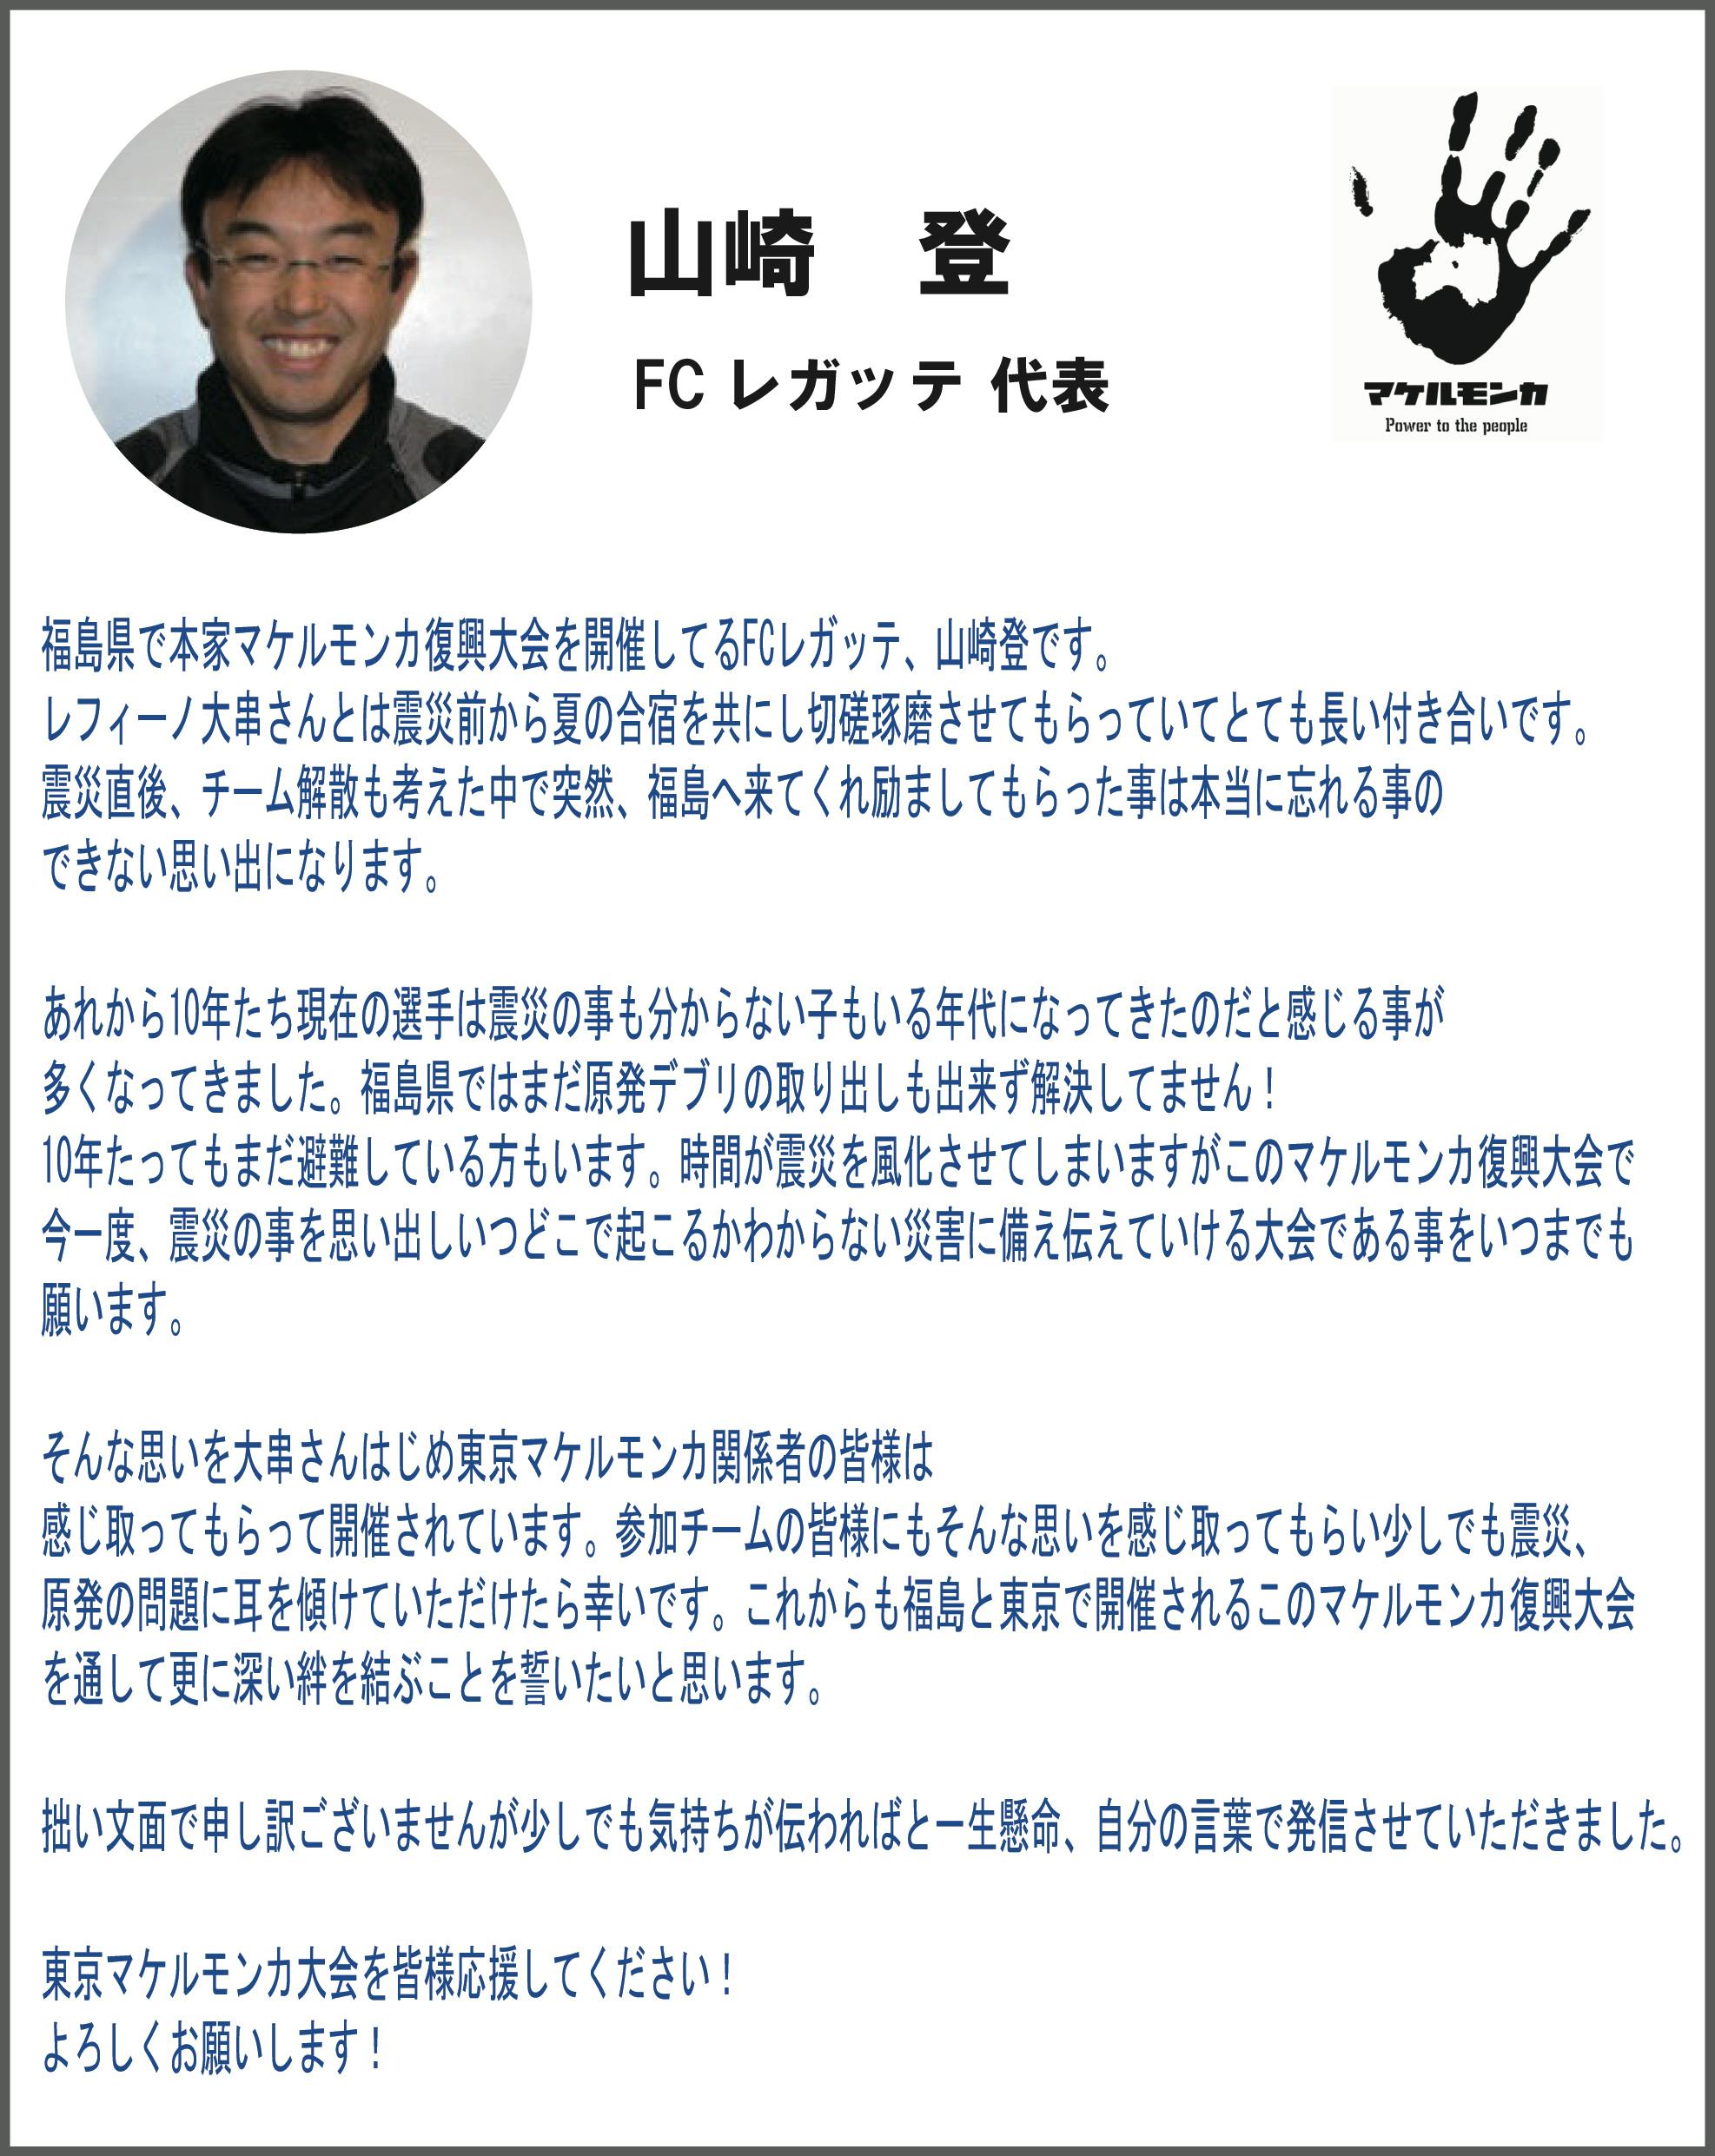 山崎　登
FC レガッテ 代表
マケルモンカ
Power to the people
福島県で本家マケルモンカ復興大会を開催してるFCレガッテ、山崎登です。
レフィーノ大串さんとは震災前から夏の合宿を共にし切磋琢磨させてもらっていてとても長い付き合いです。
震災直後、チーム解散も考えた中で突然、福島へ来てくれ励ましてもらった事は本当に忘れる事の
できない思い出になります。
あれから10年たち現在の選手は震災の事も分からない子もいる年代になってきたのだと感じる事が
多くなってきました。福島県ではまだ原発デブリの取り出しも出来ず解決してません！
10年たってもまだ避難している方もいます。時間が震災を風化させてしまいますがこのマケルモンカ復興大会で
今一度、震災の事を思い出しいつどこで起こるかわからない災害に備え伝えていける大会である事をいつまでも
願います。
そんな思いを大串さんはじめ東京マケルモンカ関係者の皆様は
感じ取ってもらって開催されています。参加チームの皆様にもそんな思いを感じ取ってもらい少しでも震災、
原発の問題に耳を傾けていただけたら幸いです。これからも福島と東京で開催されるこのマケルモンカ復興大会
を通して更に深い絆を結ぶことを誓いたいと思います。
拙い文面で申し訳ございませんが少しでも気持ちが伝わればと一生懸命、自分の言葉で発信させていただきました。
東京マケルモンカ大会を皆様応援してください！
よろしくお願いします！